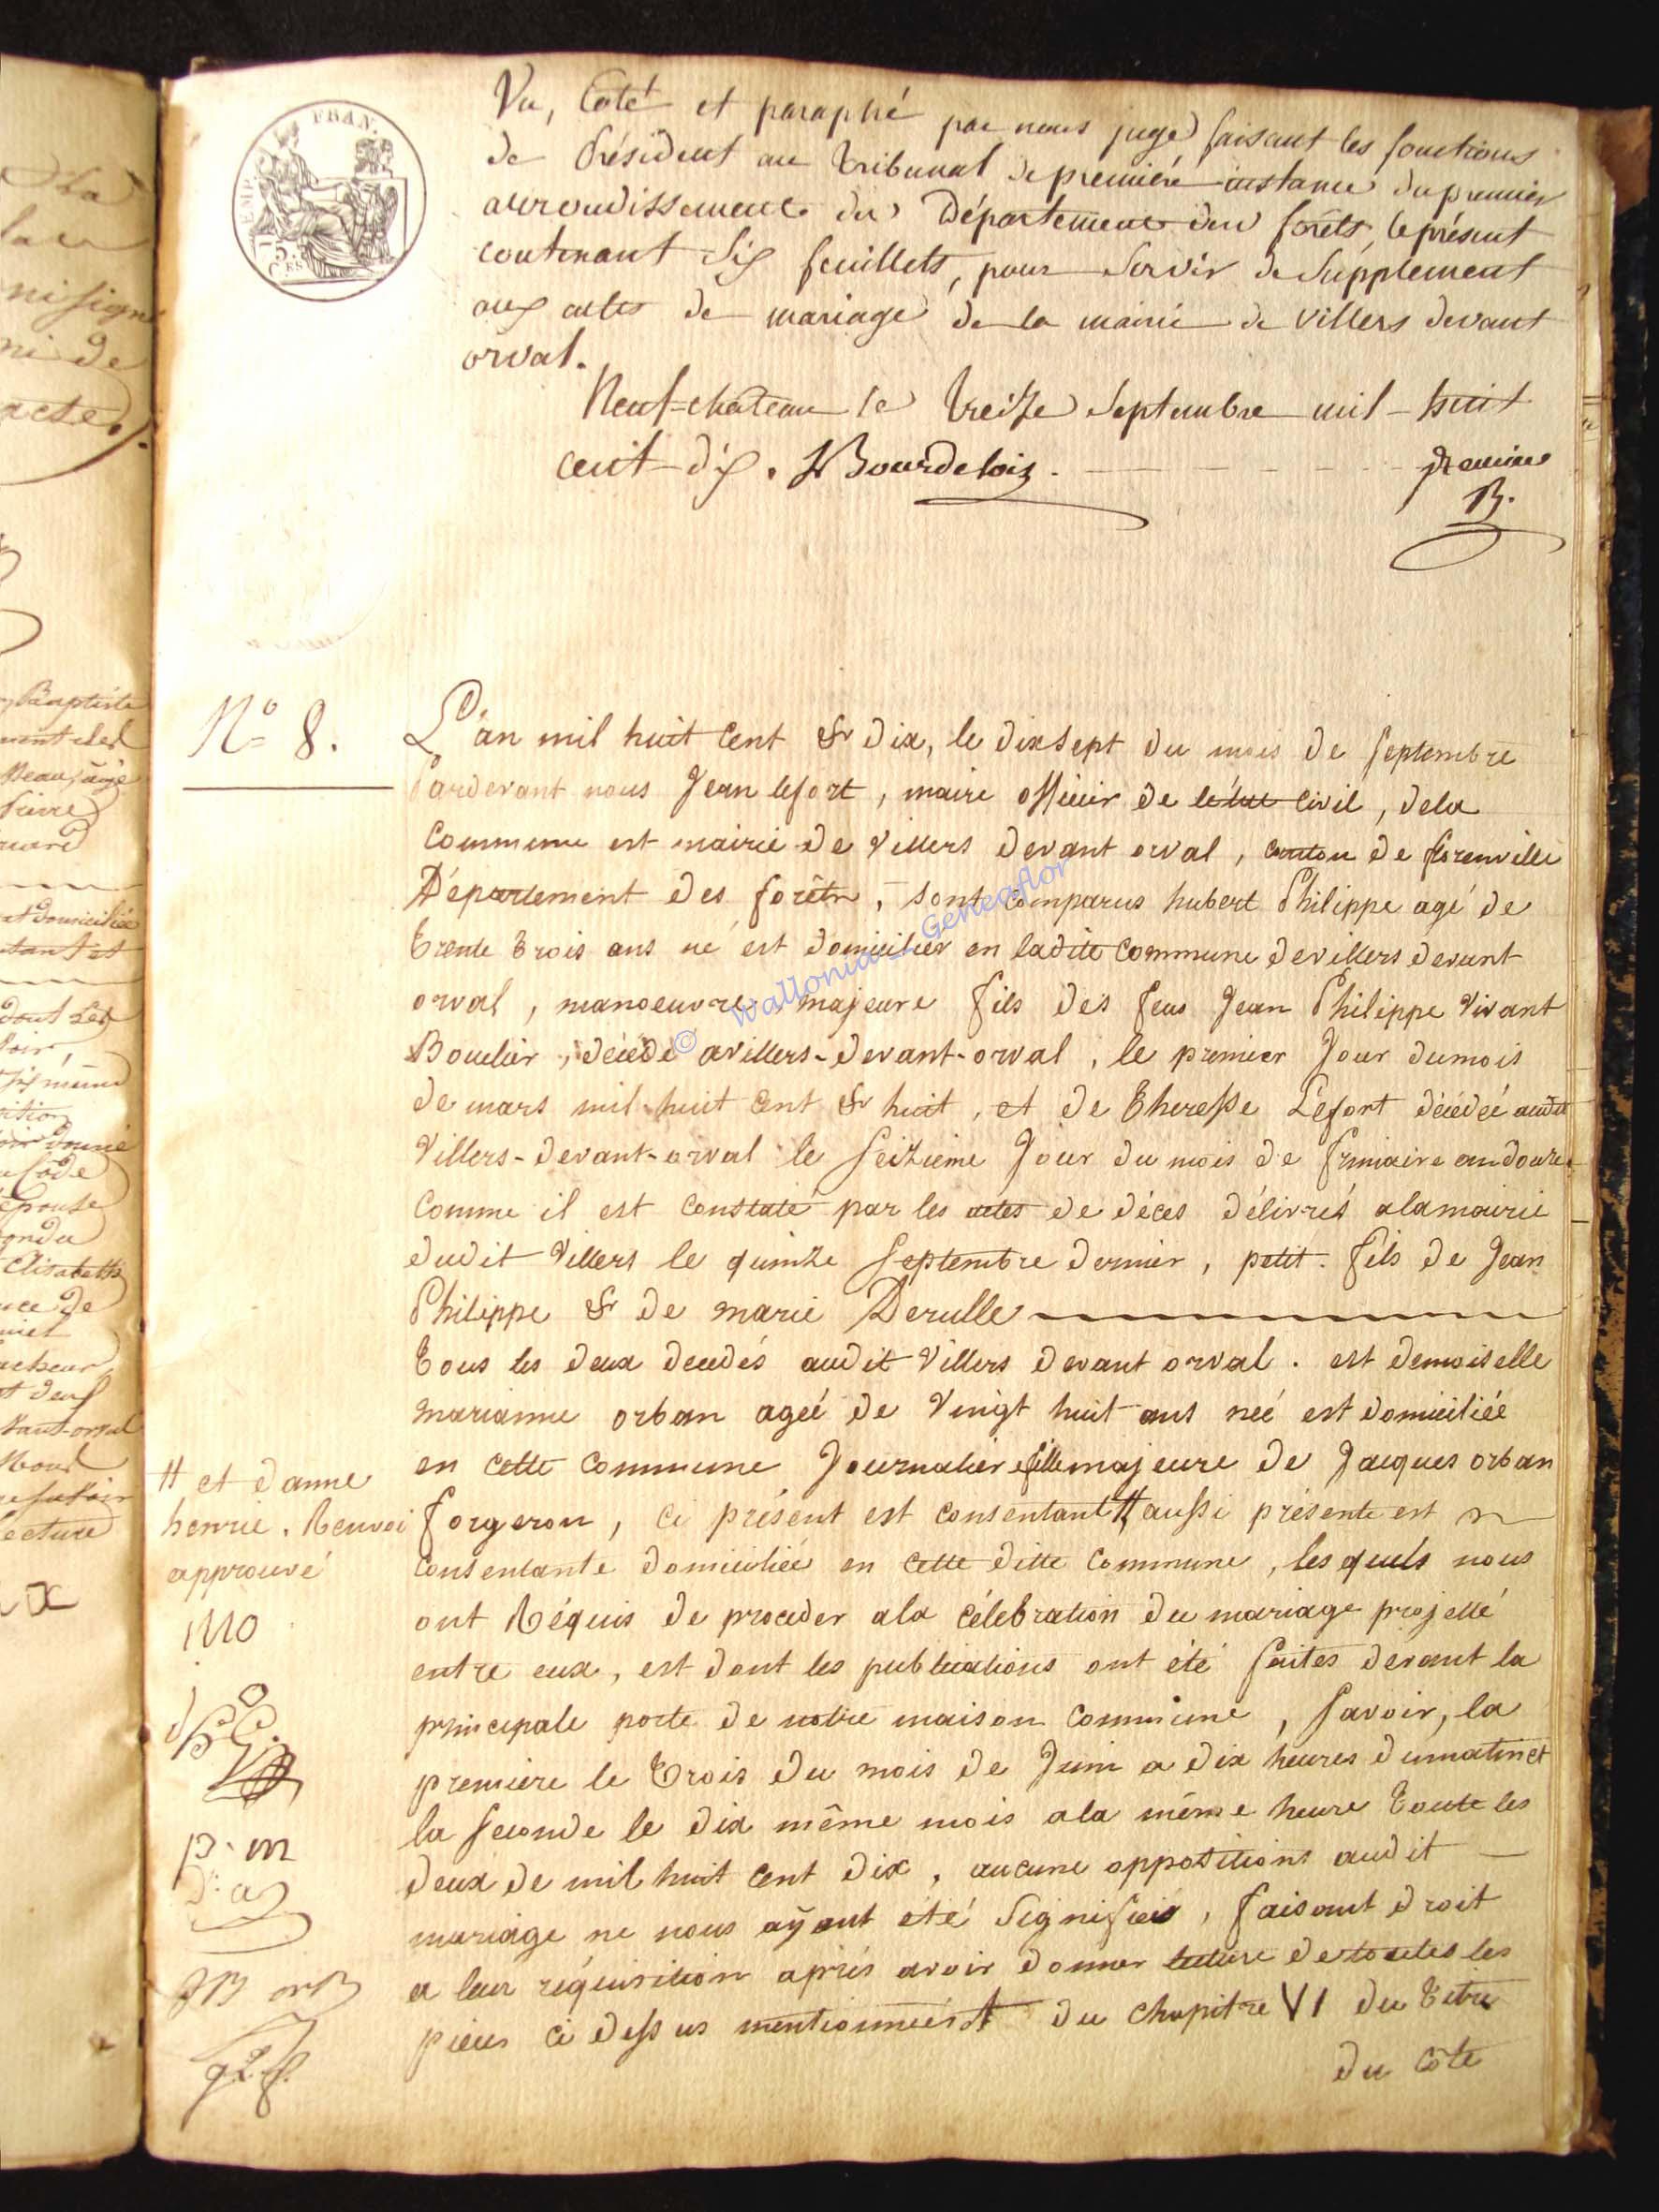 EMP. FRAN.
75. Ces
Vu, Coté et paraphé par nous juge faisant les fonctions
de Président au Tribunal de premiere instance du premier
arrondissement du Département des forêts, le présent
contenant six feuillets, pour servir de Supplement
aux actes de mariage de la mairie de Villers devant
orval.
Neuf-chateau le treize Septembre mil huit
cent dix. Bourdelois. premier
B.
N° 8.
L'an mil huit Cent & dix, le dix Sept du mois de Septembre
Pardevant nous Jean lefort, maire officier de l'état civil, dela
Commune est mairie de Villers devant orval, canton de florenville
Département des forêts, sont comparus hubert Philippe agé de
trente trois ans né est domicilier en ladite Commune de villers devant
orval, manoeuvre majeure fils des feus Jean Philippe vivant
Bouclier, décédé a villers-devant-orval, le premier Jour dumois
de mars mil huit Cent & huit, et de Theresse Lefort décédeé audit
Villers-devant-orval le Seizieme Jour du mois de frimaire an douze
Comme il est Constaté par les actes de déces délivrés alamairie
dudit Villers le quinze Septembre dernier, petit fils de Jean
Philippe & de marie Derulle
tous les deux decedés audit Villers devant orval. est demoiselle
marianne orban ageé de Vingt huit ans neé est domiciliée
en Cette Commune Journaliere fille majeure de Jacques orban
forgeron, Ci présent est consentant # aussi présente est
Consentante domiciliée en Cette ditte Commune, les quels nous
ont Réquis de proceder ala célebration du mariage projetté
entre eux, est dont les publications ont été faites devant la
principale porte de notre maison Commune, Savoir, la
premiere le trois du mois de Juin a dix heures dumatin et
la Seconde le dix même mois ala même heure toute les
deux de mil huit Cent dix, aucune oppositions audit
mariage ne nous aÿant été Signifiés, faisant droit
a leur réquisition aprés avoir donner lecture de toutes les
pieces ci dessus mentionnées et du chapitre VI du titre
du Côte
# et d'anne
henrie. Renvoi
approuvé
MO
p. m
d. a
JB orB
© Wallonia_Geneaflor